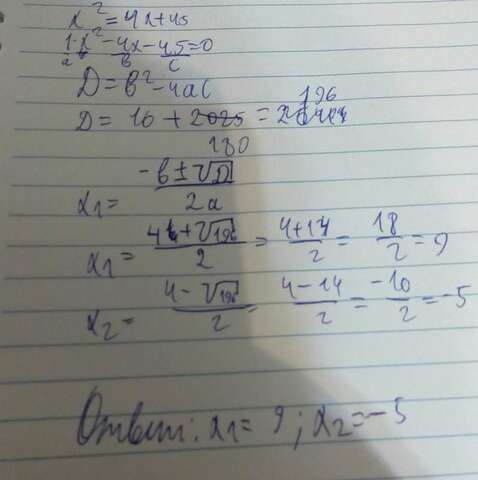 x² = 4x+45
1·x² - 4x - 45 = 0
a в c
D = в² - 4ac
196
D = 16 + 2025 =
180
x₁ = (-в ± √D) / 2a
x₁ = (4 + √196) / 2 = (4+14) / 2 = 18 / 2 = 9
x₂ = (4 - √196) / 2 = (4 - 14) / 2 = -10 / 2 = -5
Ответ: x₁ = 9; x₂ = -5